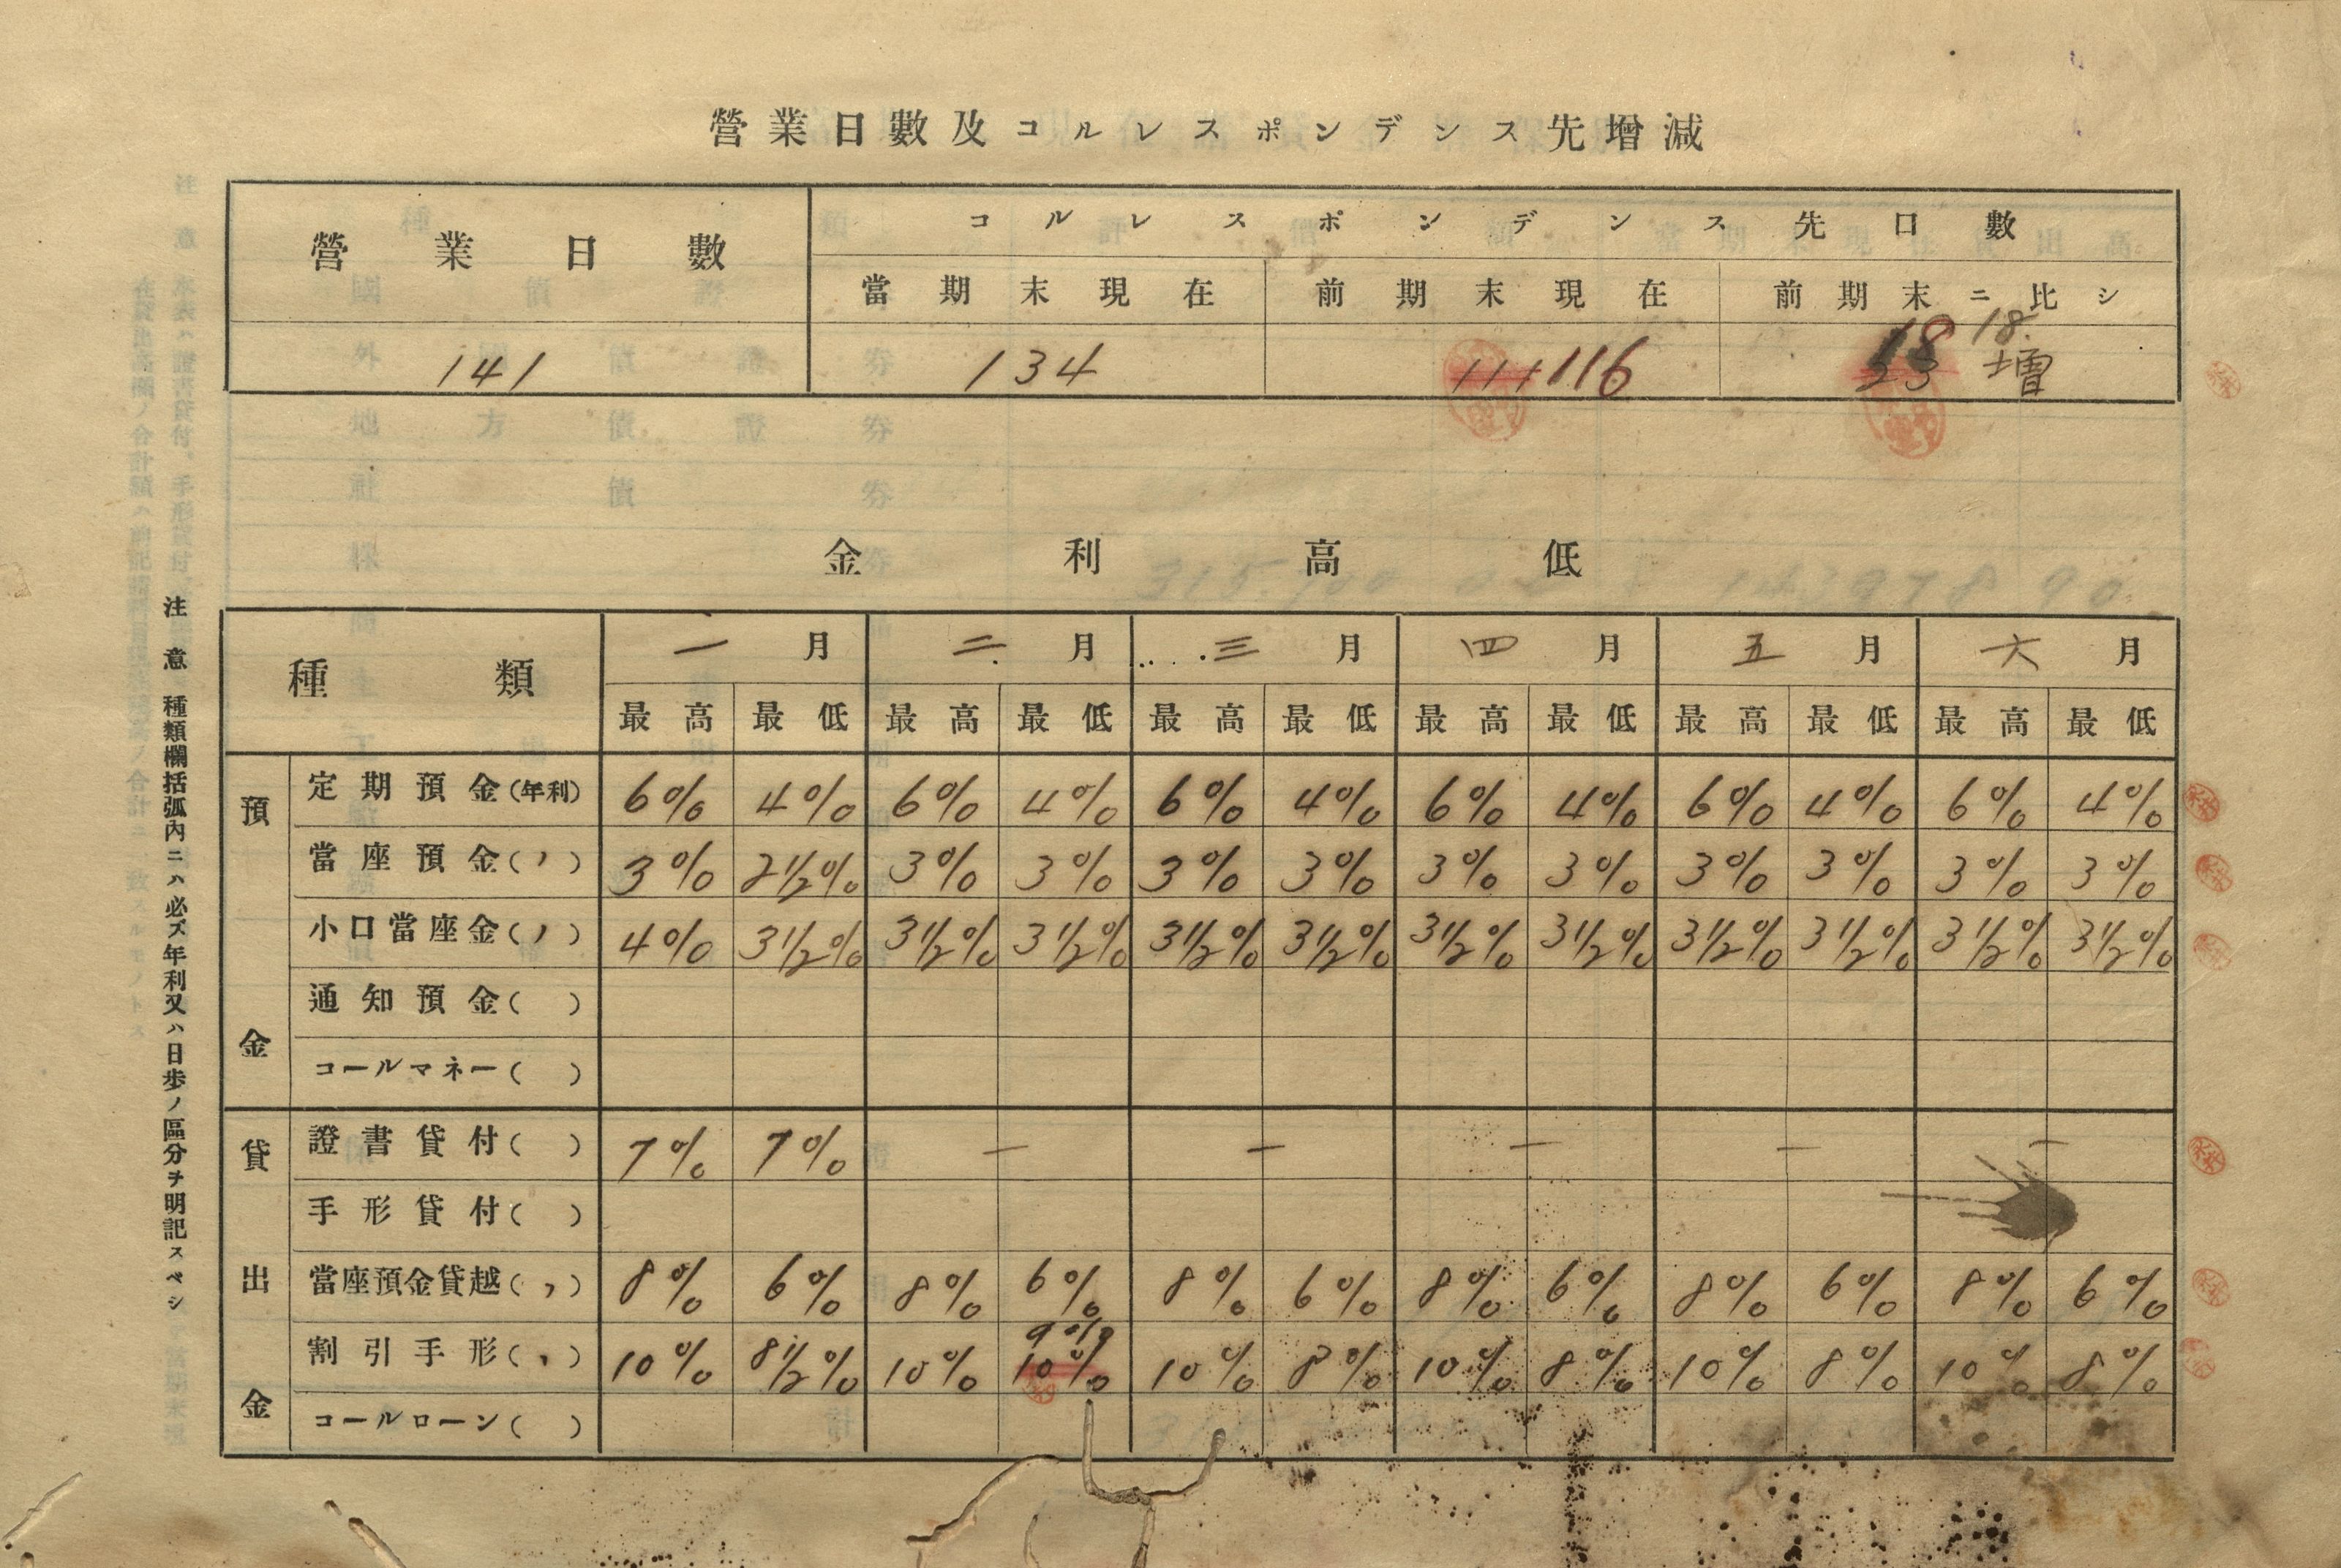 營業日數及コルレスポンデンス先增減
營業日數
コルレスポンデンス先口數
當期末現在 前期末現在 前期末ニ比シ
18
141 134 111 116 23 18 増
金利高低
種類 一月 二月 三月 四月 五月 六月
最高 最低 最高 最低 最高 最低 最高 最低 最高 最低 最高 最低
預金
定期預金(年利) 6% 4% 6% 4% 6% 4% 6% 4% 6% 4% 6% 4%
當座預金(〃) 3% 2½% 3% 3% 3% 3% 3% 3% 3% 3% 3% 3%
小口當座金(〃) 4% 3½% 3½% 3½% 3½% 3½% 3½% 3½% 3½% 3½% 3½% 3½%
通知預金( )
コールマネー( )
貸出金
證書貸付( ) 7% 7% — — — — —
手形貸付( )
當座預金貸越(〃) 8% 6% 8% 6% 8% 6% 8% 6% 8% 6% 8% 6%
9%
割引手形(〃) 10% 8½% 10% 10% 10% 8% 10% 8% 10% 8% 10% 8%
コールローン( )
注意 種類欄括弧內ニハ必ズ年利又ハ日步ノ區分ヲ明記スベシ